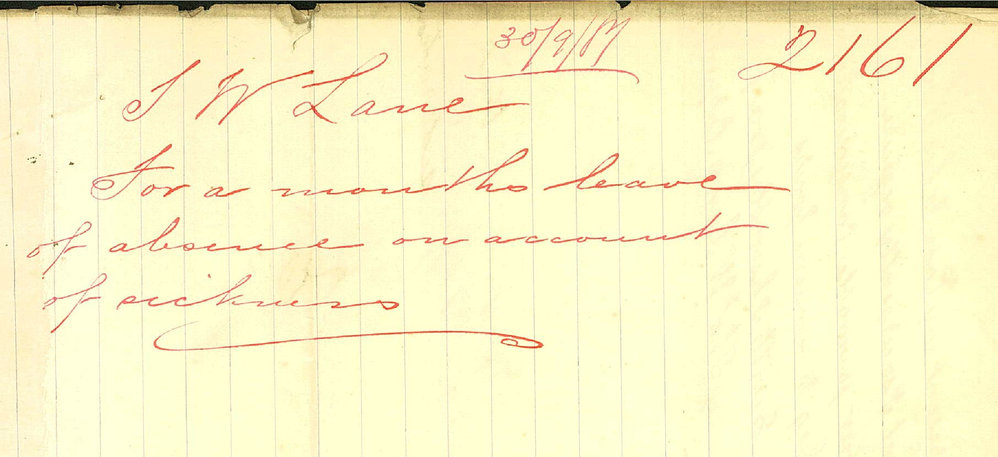 30/9/87
2161
S W Lane
For a months leave
of absence on account
of sickness